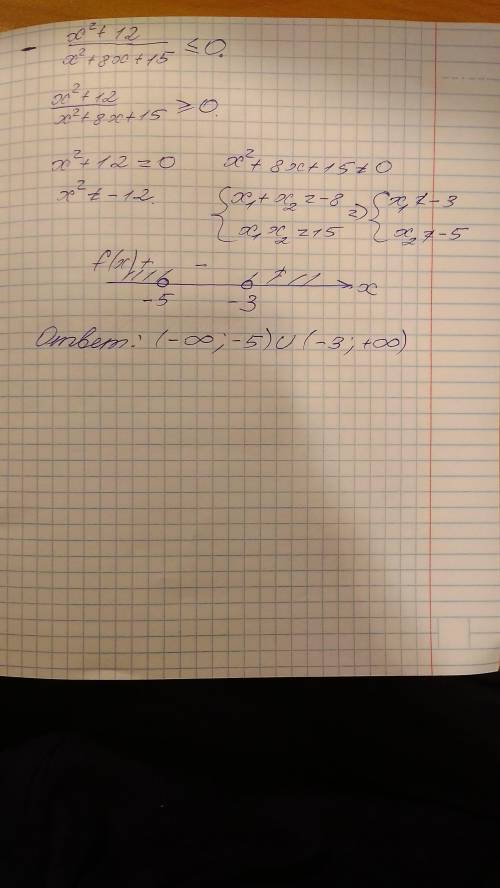 - x²+12/x²+8x+15 ≤ 0.
x²+12/x²+8x+15 ≥ 0.
x²+12=0 x²+8x+15≠0
x²≠-12. {x₁+x₂=-8 x₁x₂=15 => {x₁≠-3 x₂≠-5
f(x) + - +
-5 -3 x
Ответ: (-∞;-5)∪(-3;+∞)